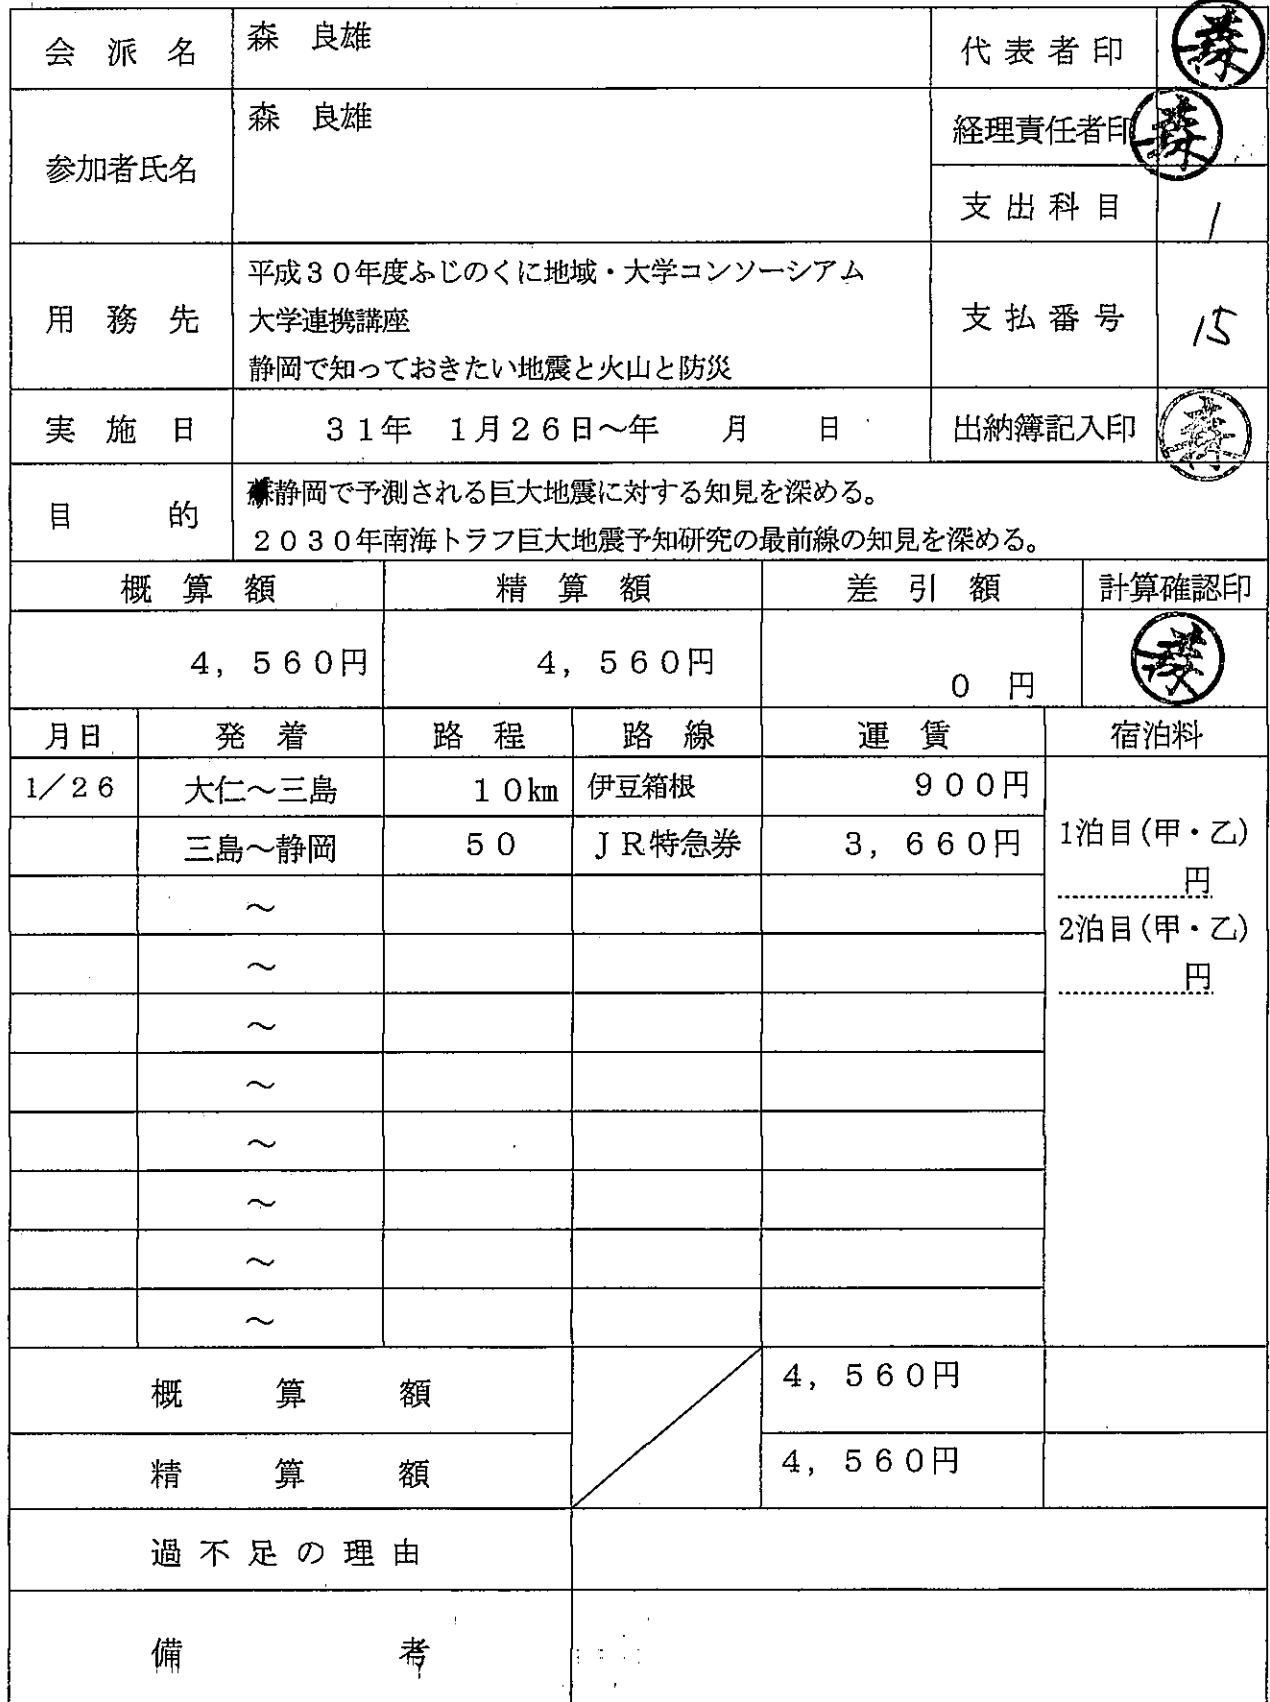 会派名 森 良雄 代表者印 森
参加者氏名 森 良雄 経理責任者印 森
支出科目 1
用務先 平成30年度ふじのくに地域・大学コンソーシアム
大学連携講座
静岡で知っておきたい地震と火山と防災
支払番号 15
実施日 31年 1月26日～年 月 日 出納簿記入印 森
目的 静岡で予測される巨大地震に対する知見を深める。
2030年南海トラフ巨大地震予知研究の最前線の知見を深める。
概算額 精算額 差引額 計算確認印
4,560円 4,560円 0 円 森
月日 発着 路程 路線 運賃 宿泊料
1/26 大仁～三島 10km 伊豆箱根 900円
三島～静岡 50 JR特急券 3,660円
1泊目(甲・乙)
円
2泊目(甲・乙)
円
～
～
～
～
～
～
～
～
概算額 4,560円
精算額 4,560円
過不足の理由
備考